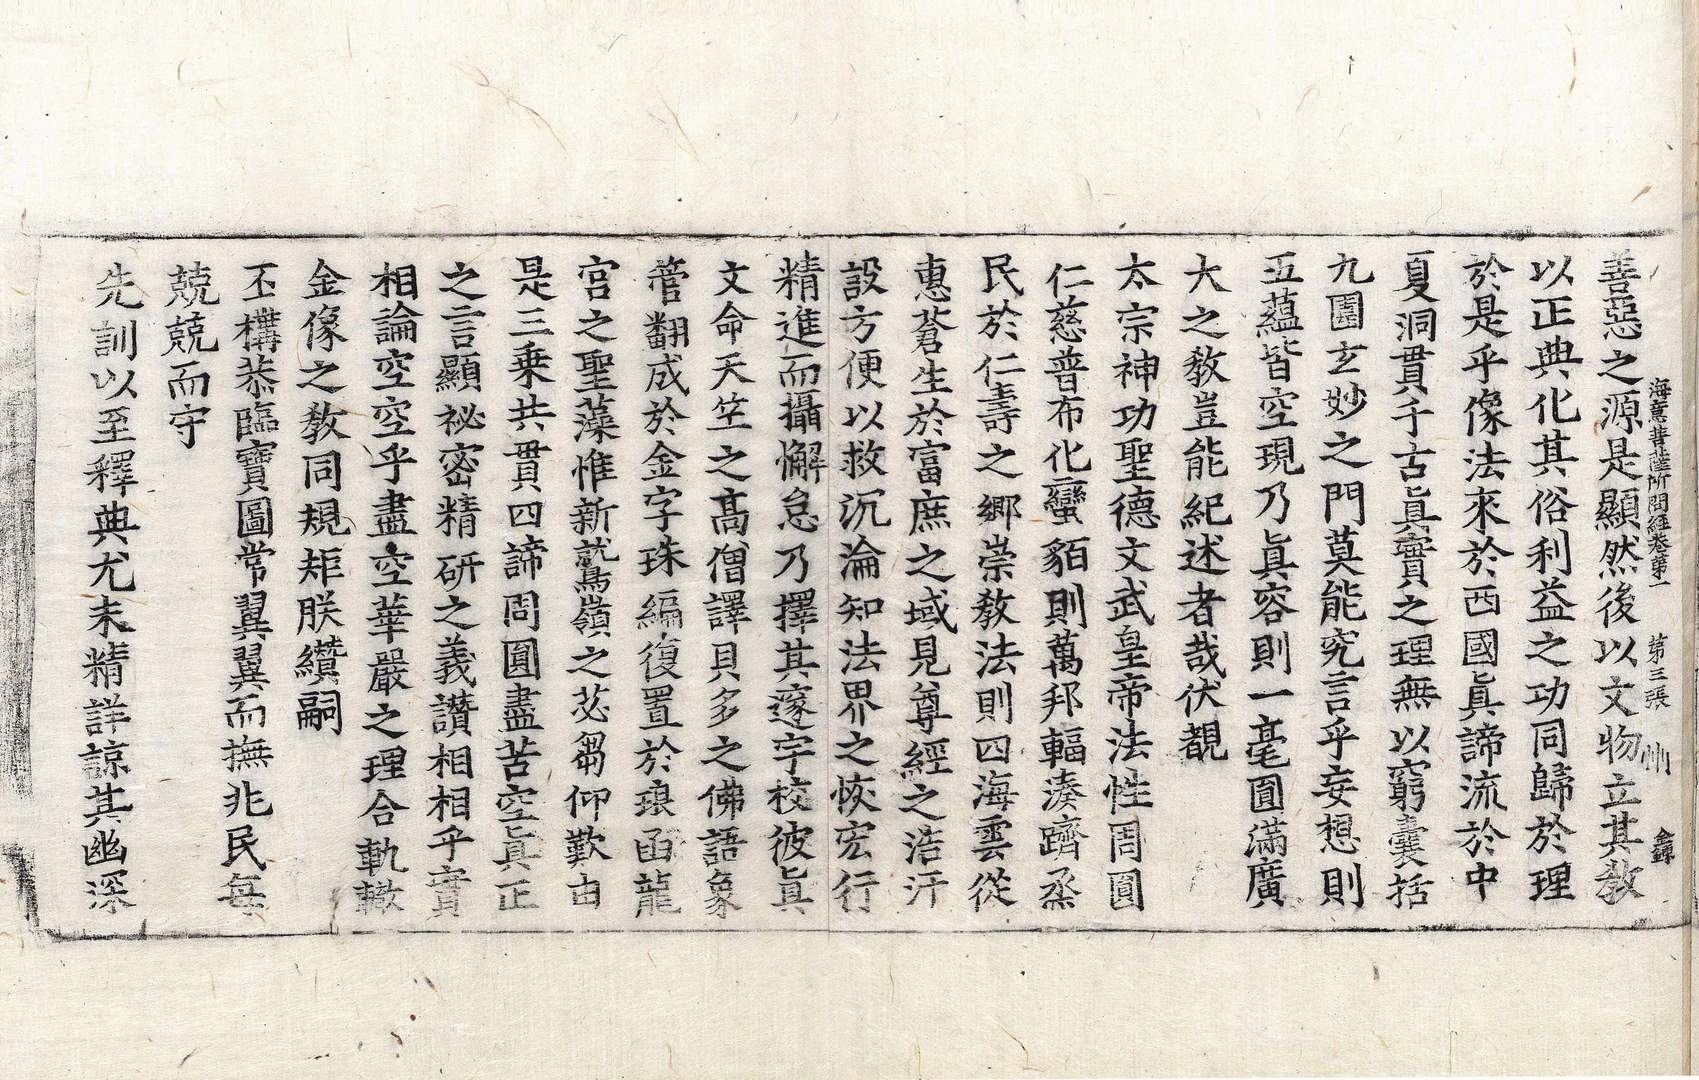 海意菩薩所問經卷第一 第三張 州
善惡之源是顯然後以文物立其教
以正典化其俗利益之功同歸於理
於是乎像法來於西國眞諦流於中
夏洞貫千古眞實之理無以窮囊括
九圍玄妙之門莫能究言乎妄想則
五蘊皆空現乃眞容則一毫圓滿廣
大之教豈能紀述者哉伏覩
太宗神功聖德文武皇帝法性周圓
仁慈普布化蠻貊則萬邦輻湊躋烝
民於仁壽之鄉崇教法則四海雲從
惠蒼生於富庶之域見尊經之浩汗
設方便以救沉淪知法界之恢宏行
精進而攝懈怠乃擇其邃宇校彼眞
文命天竺之高僧譯貝多之佛語象
管翻成於金字珠編復置於琅函龍
宮之聖藻惟新鷲嶺之苾芻仰歎由
是三乘共貫四諦周圓盡苦空眞正
之言顯祕密精研之義讚相相乎實
相論空空乎盡空華嚴之理合軌轍
金像之教同規矩朕纘嗣
丕構恭臨寶圖常翼翼而撫兆民每
兢兢而守
先訓以至釋典尤未精詳諒其幽深